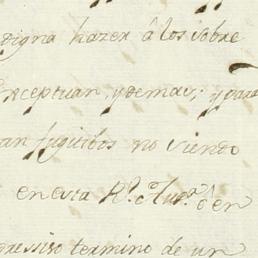 digna hazer á los sobre
exceptuan, y demas; y para
an fugitibos no viendo
en esta Rl. Audª. ó en
gressiso termino de un